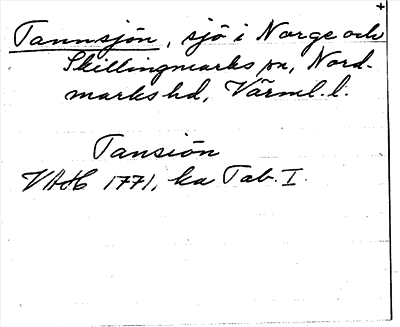 +
Tannsjön, sjö i Norge och
Skillingmarks sn, Nord-
markshd, Värml. l.
Tansiön
VAH 1771, ka Tab. I.